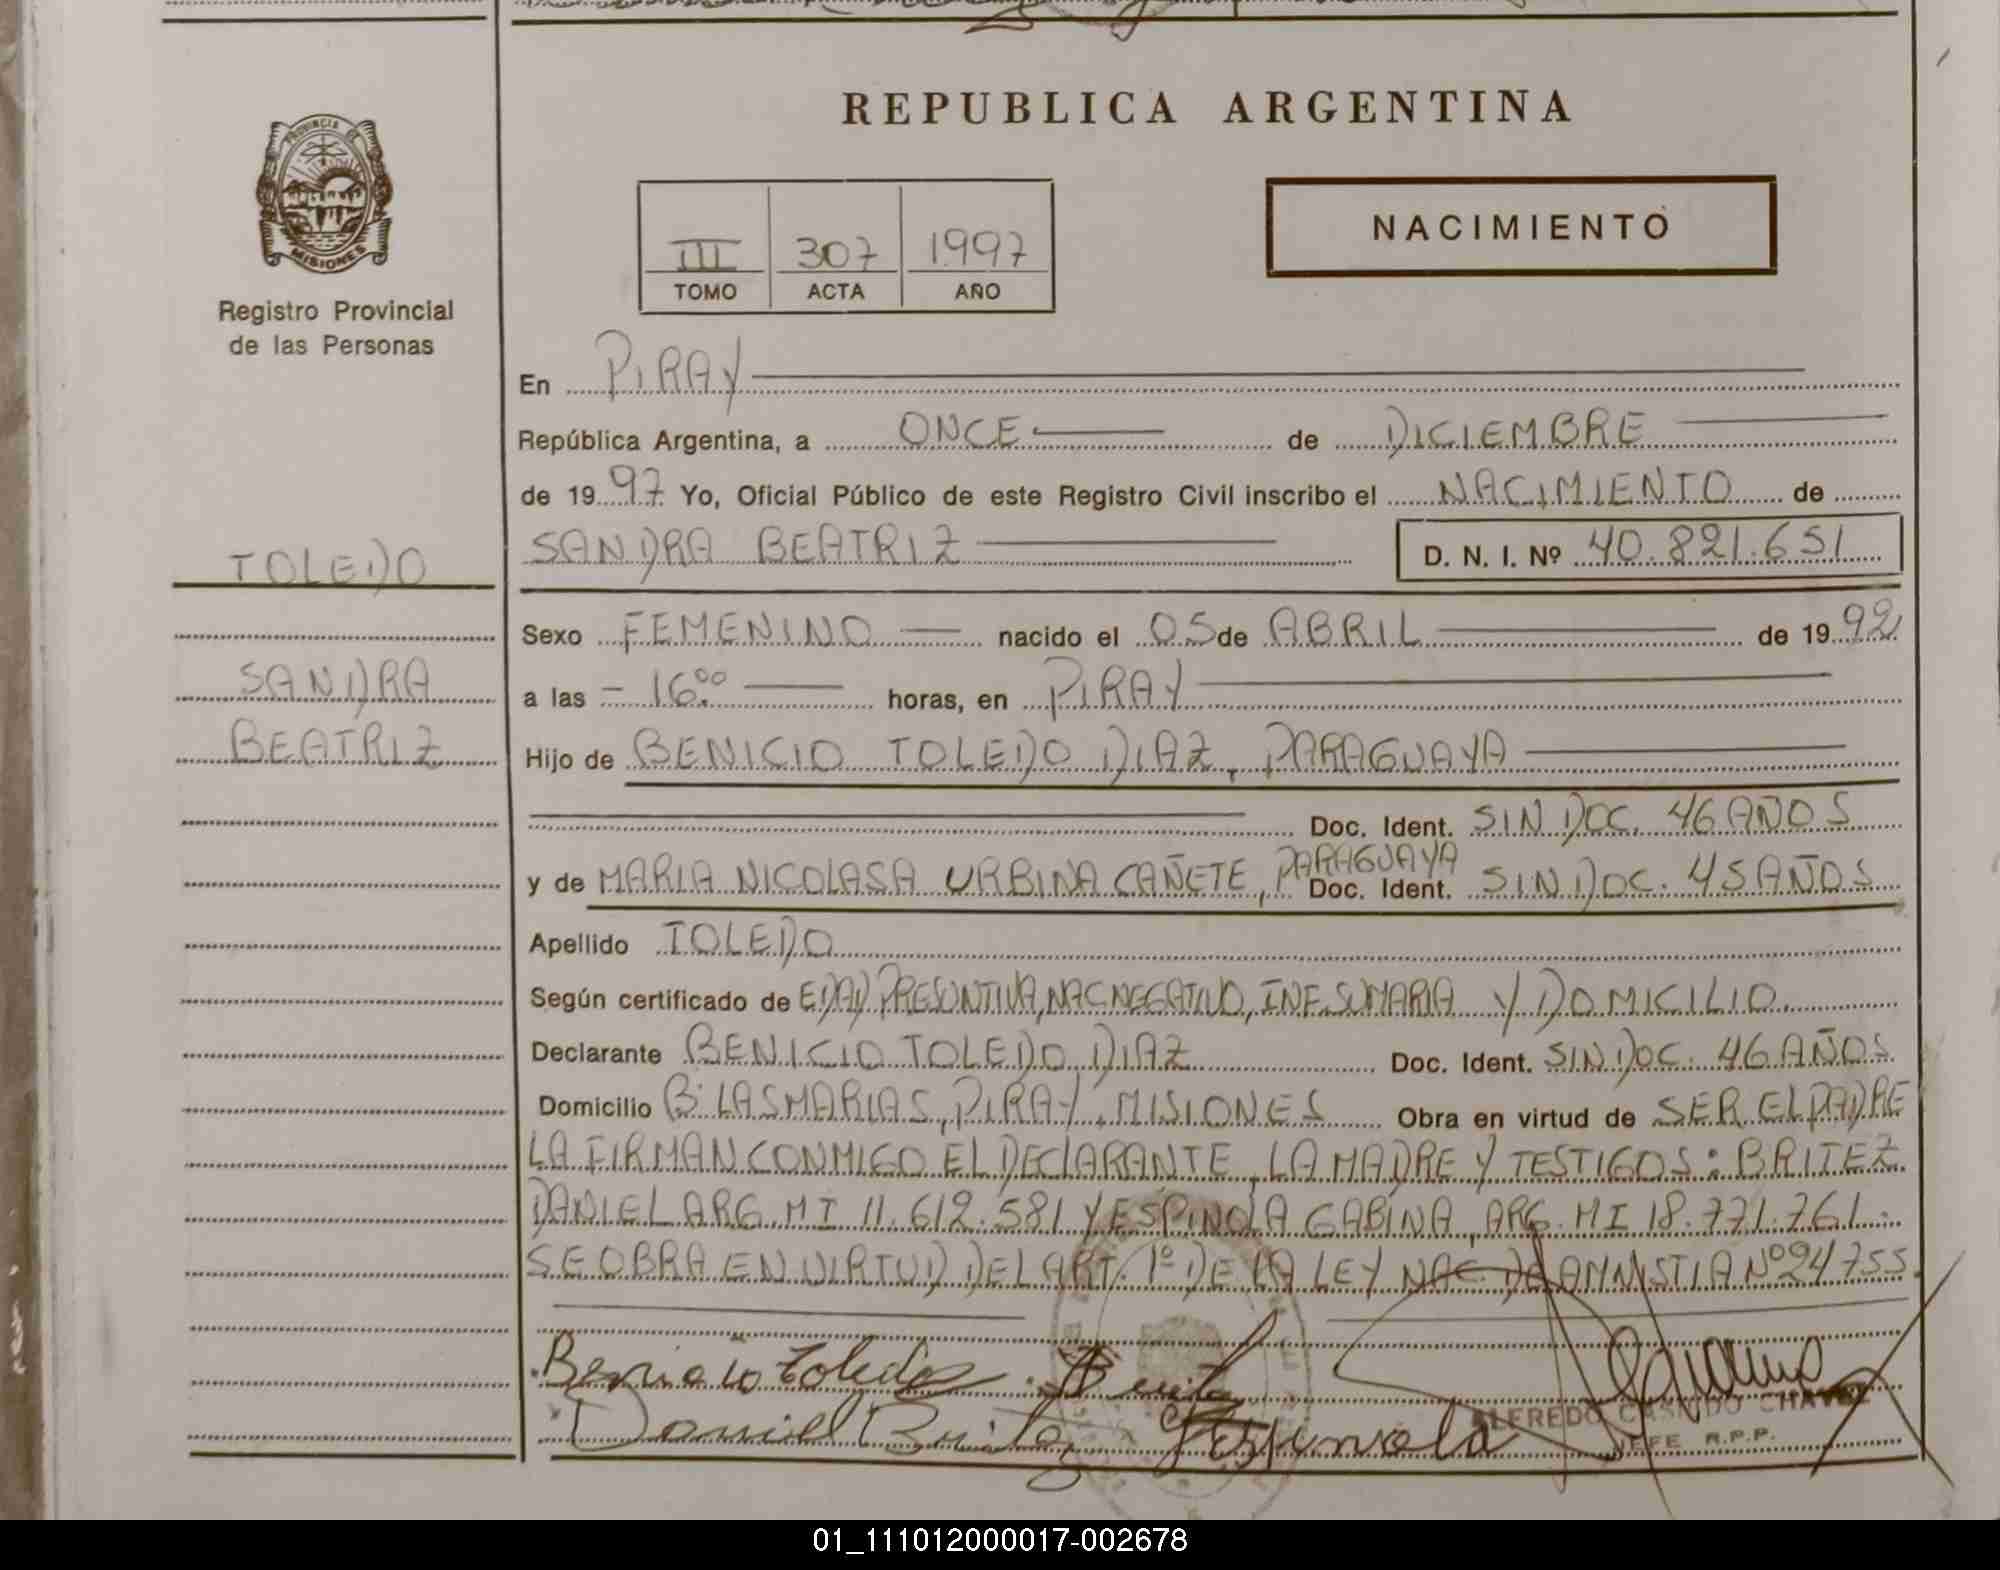 REPUBLICA ARGENTINA
PROVINCIA DE
MISIONES
Registro Provincial
de las Personas
NACIMIENTO
III 307 1997
TOMO ACTA AÑO
En PIRAY
República Argentina, a ONCE de DICIEMBRE
de 1997 Yo, Oficial Público de este Registro Civil inscribo el NACIMIENTO de
SANDRA BEATRIZ D. N. I. Nº 40.821.651
TOLEDO
Sexo FEMENINO nacido el 05 de ABRIL de 1992
SANDRA
a las 16:00 horas, en PIRAY
BEATRIZ
Hijo de BENICIO TOLEDO DIAZ, PARAGUAYA
Doc. Ident. SIN DOC. 46 AÑOS
y de MARIA NICOLASA URBINA CAÑETE, PARAGUAYA Doc. Ident. SIN DOC. 45 AÑOS
Apellido TOLEDO
Según certificado de EDAD PRESUNTIVA, NAC NEGATIVO, INF. SUMARIA Y DOMICILIO.
Declarante BENICIO TOLEDO DIAZ Doc. Ident. SIN DOC. 46 AÑOS
Domicilio Bº LAS MARIAS, PIRAY, MISIONES Obra en virtud de SER EL PADRE
LA FIRMAN CONMIGO EL DECLARANTE, LA MADRE Y TESTIGOS: BRITEZ
DANIEL ARG. MI 11.612.581 Y ESPINOLA GABINA, ARG. MI 18.771.761.
SE OBRA EN VIRTUD DEL ART. 1º DE LA LEY NAC. DE AMNISTIA Nº 24755
Benicio Toledo
Daniel Britez Espinola
ALFREDO CASILDO CHAVEZ
JEFE R.P.P.
01_111012000017-002678